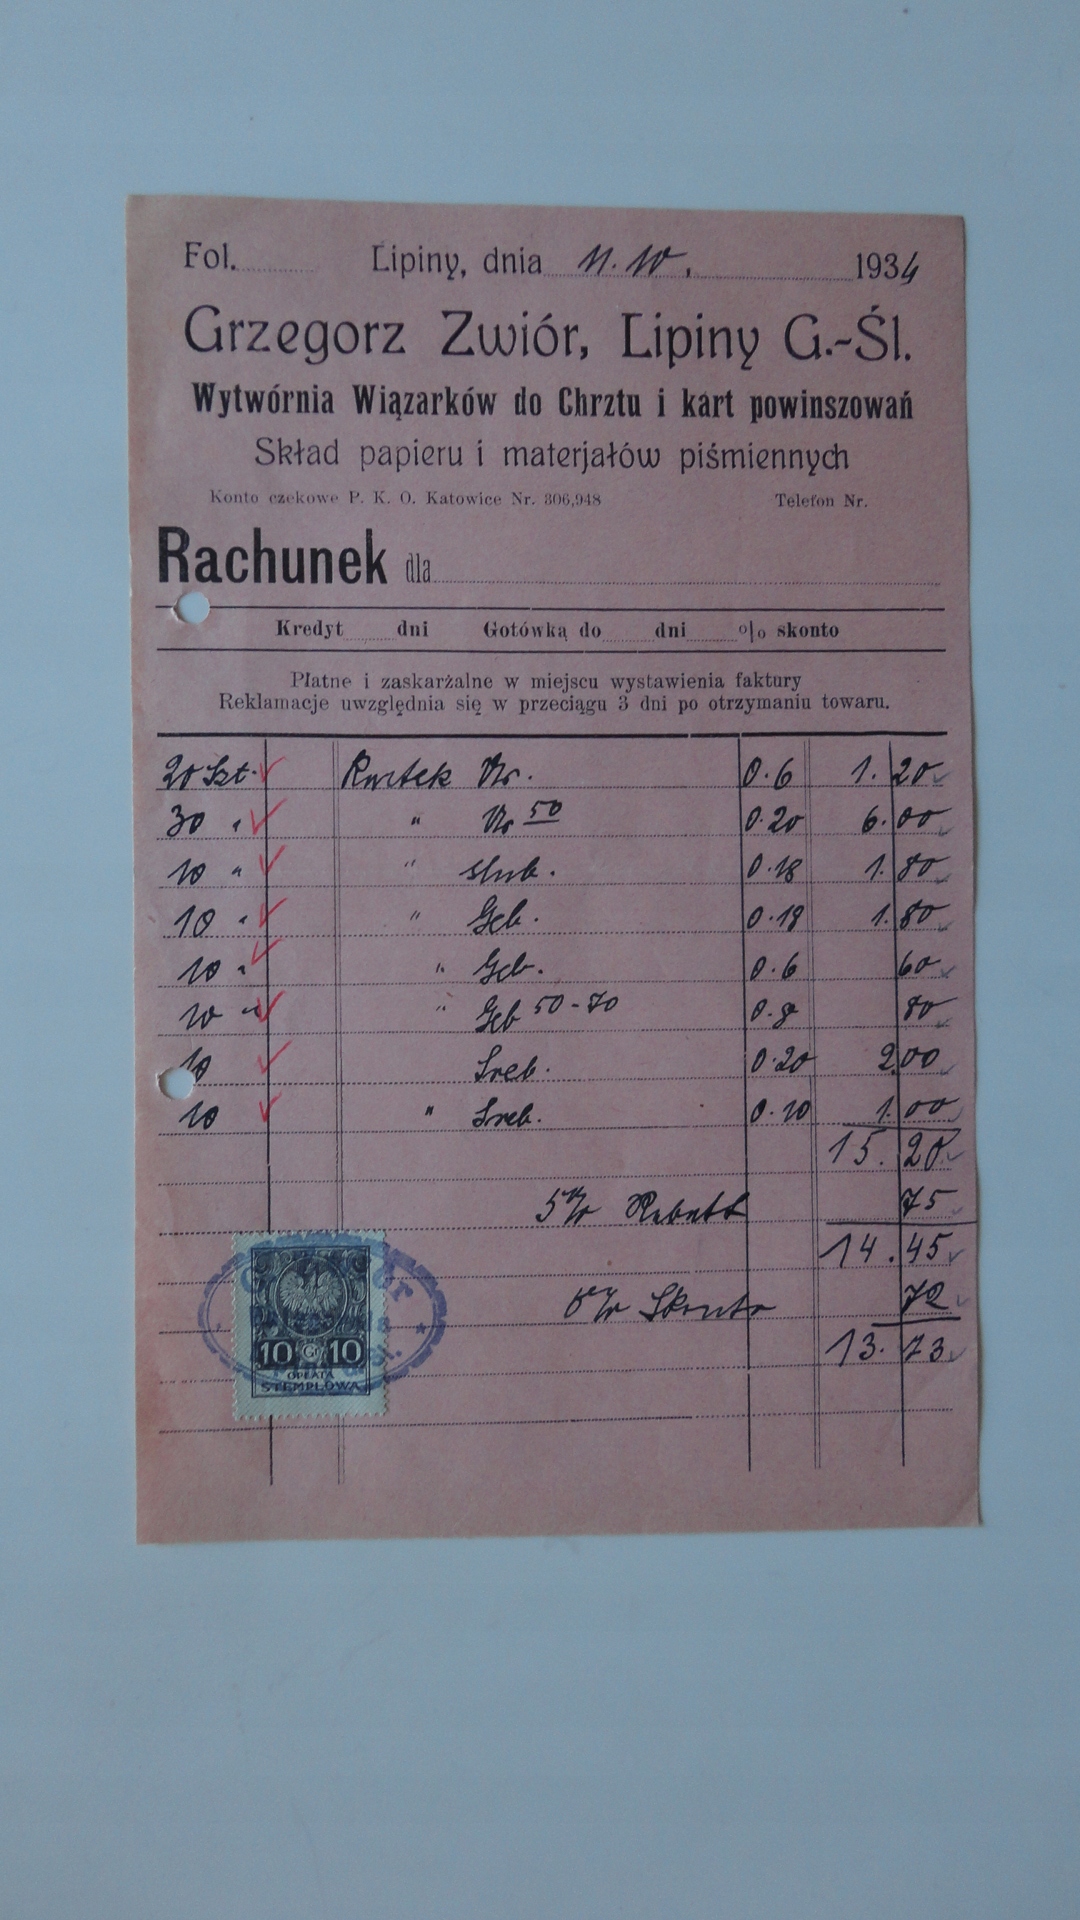 Fol. Lipiny, dnia 11. 10. 1934
Grzegorz Zwiór, Lipiny G.-Śl.
Wytwórnia Wiązarków do Chrztu i kart powinszowań
Skład papieru i materjałów piśmiennych
Konto czekowe P. K. O. Katowice Nr. 306,948 Telefon Nr.
Rachunek dla
Kredyt dni Gotówką do dni % skonto
Płatne i zaskarżalne w miejscu wystawienia faktury
Reklamacje uwzględnia się w przeciągu 3 dni po otrzymaniu towaru.
20 Szt. Kartek Nr. 0.6 1.20
30 " " Nr 50 0.20 6.00
10 " " slub. 0.18 1.80
10 " " Geb. 0.18 1.80
10 " " Geb. 0.6 60
10 " " Geb 50-70 0.8 80
10 Sreb. 0.20 2.00
10 " Sreb. 0.10 1.00
15.20
5% Rabatt 75
14.45
5% Skonto 72
13.73
10 Gr 10
OPŁATA
STEMPLOWA